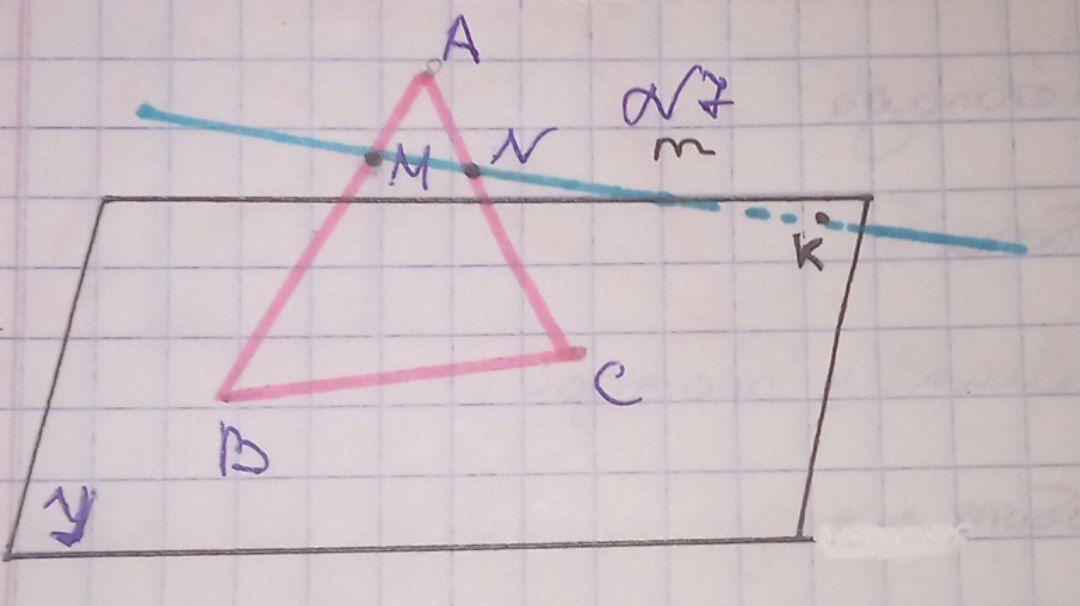 A
№7
m
M
N
K
C
B
γ